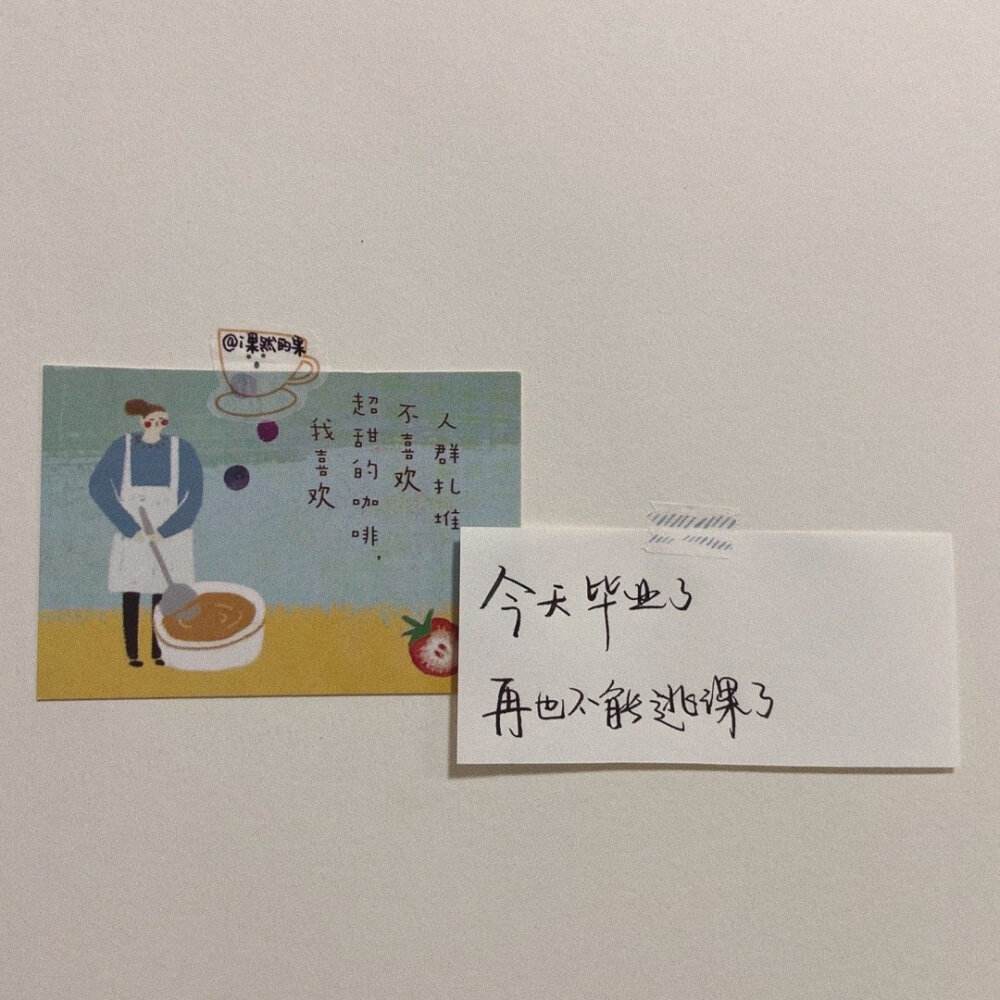 @i果然的果
人群扎堆
不喜欢
超甜的咖啡，
我喜欢
今天毕业了
再也不能逃课了